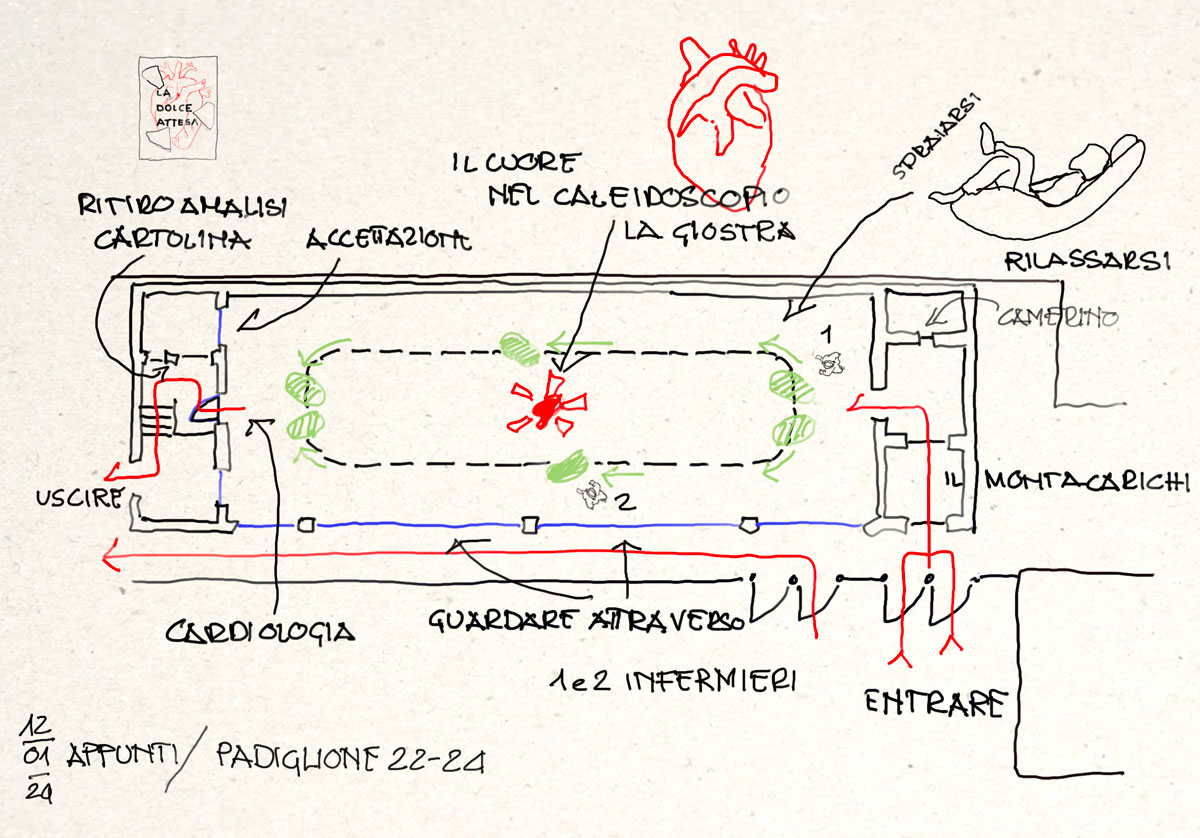 LA
DOLCE
ATTESA
IL CUORE
NEL CALEIDOSCOPIO
LA GIOSTRA
SDRAIARSI
RITIRO ANALISI
CARTOLINA
ACCETTAZIONE
RILASSARSI
CAMERINO
1
IL MONTACARICHI
USCIRE
2
CARDIOLOGIA
GUARDARE ATTRAVERSO
1 e 2 INFERMIERI
ENTRARE
12
01
24
APPUNTI / PADIGLIONE 22-24